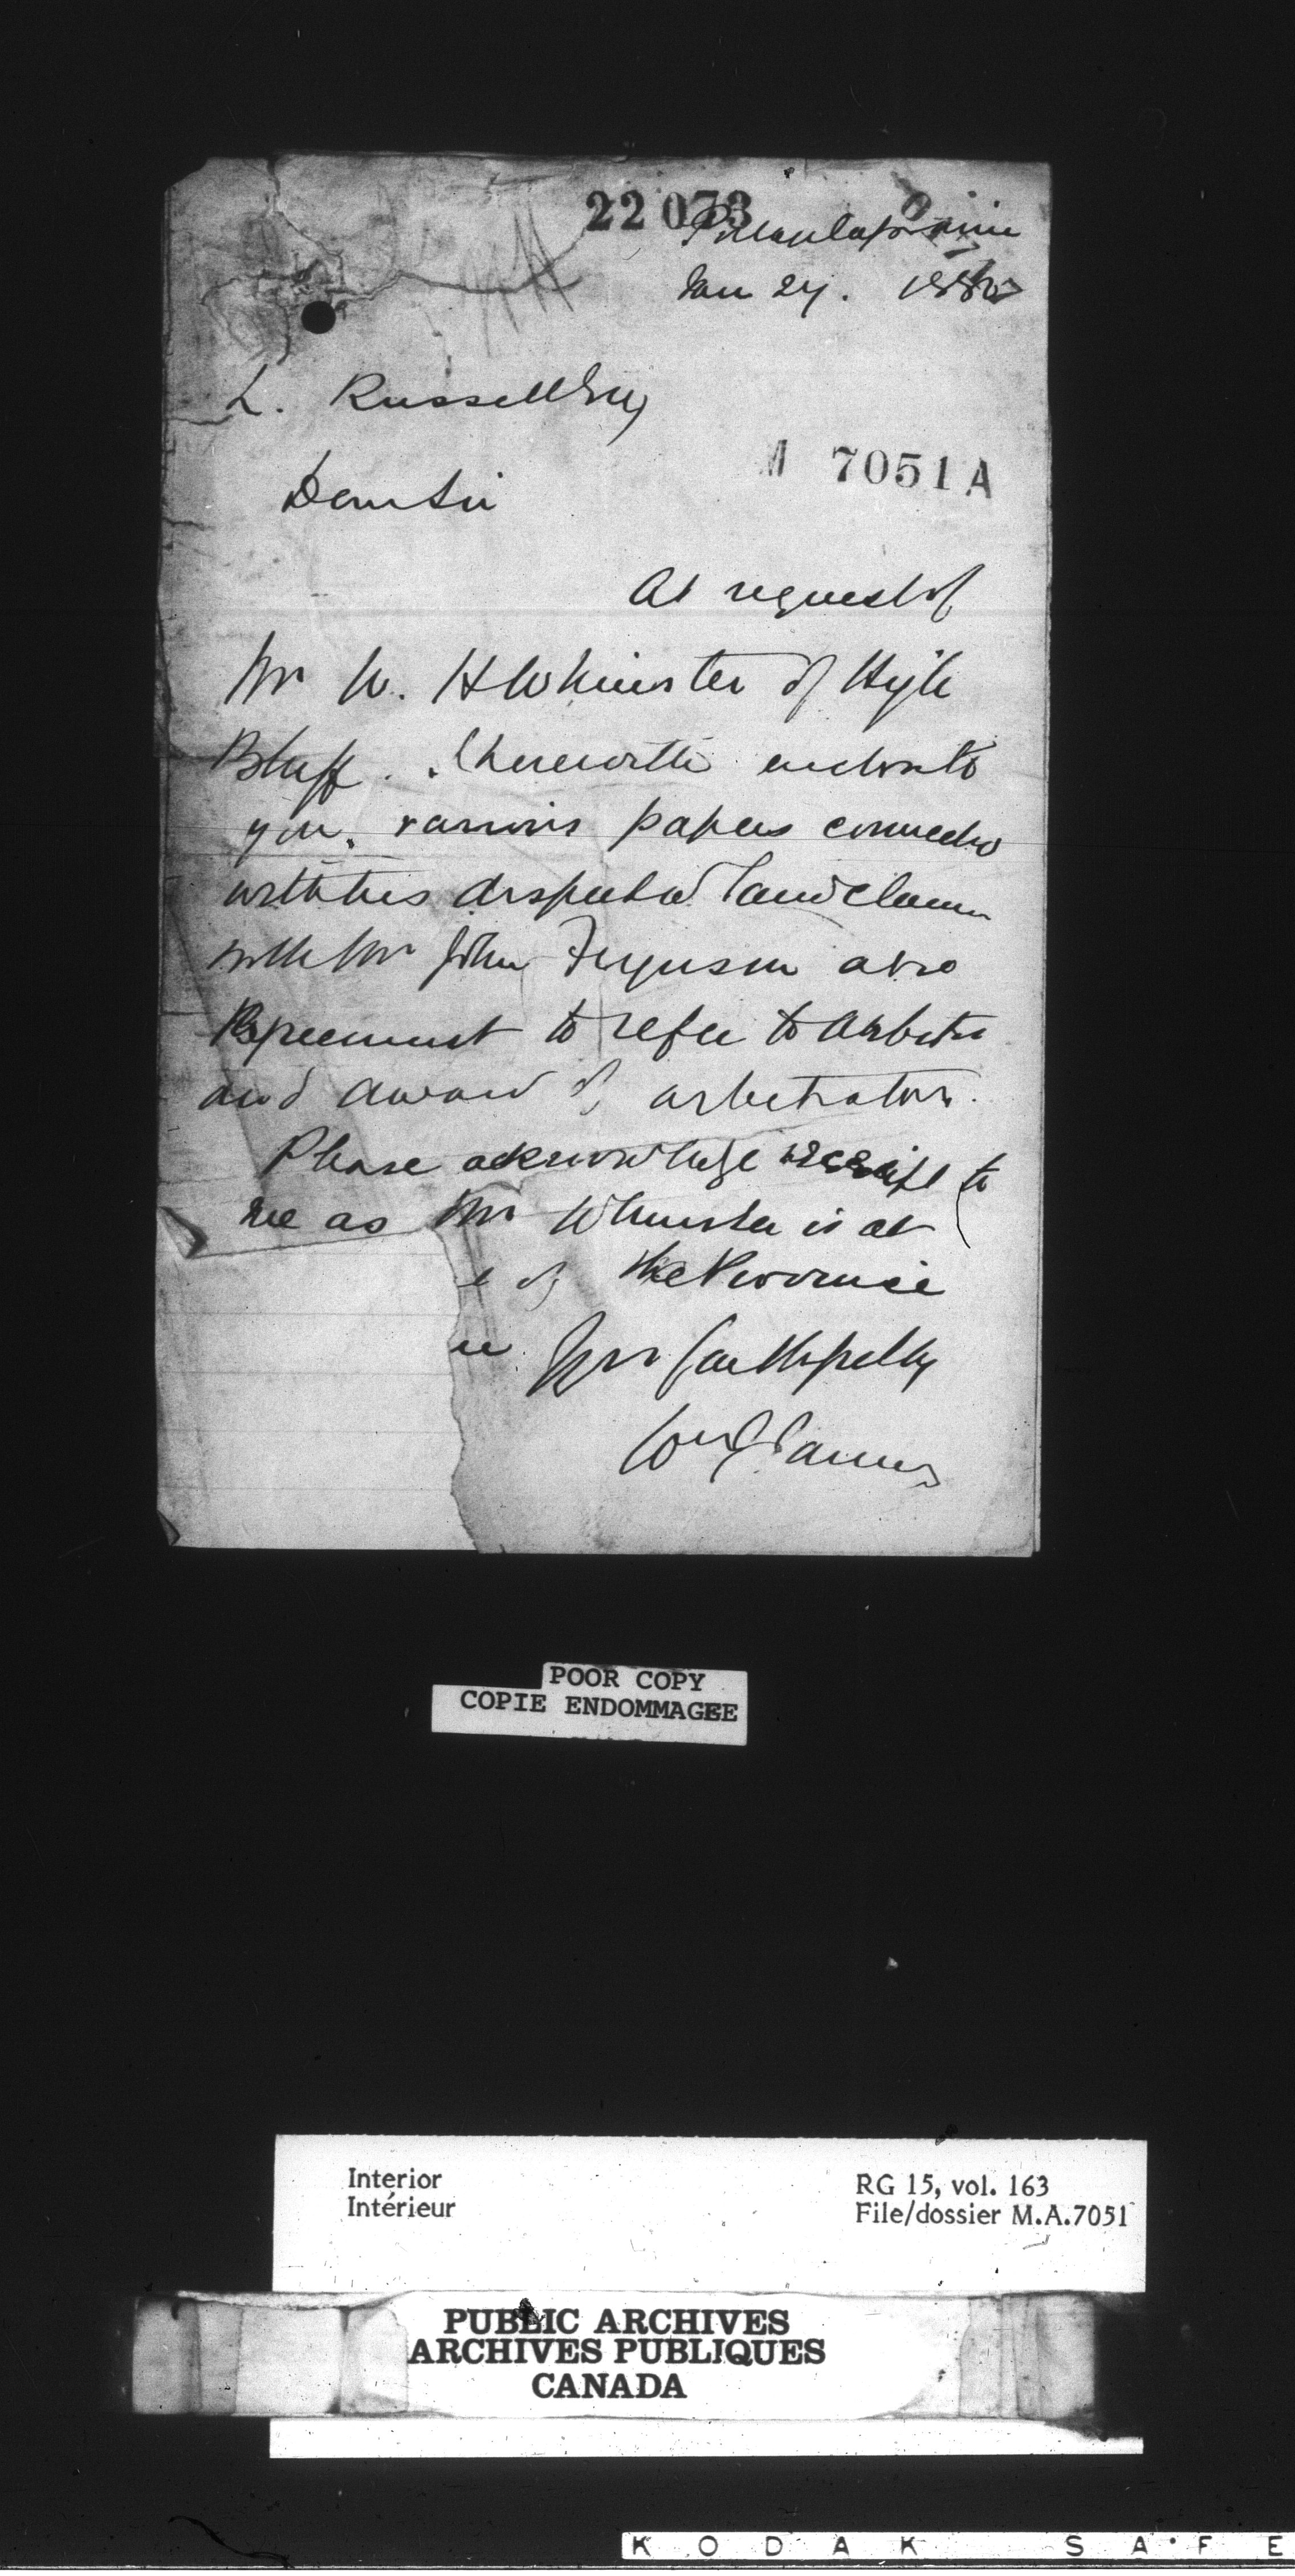 22073
Portage la Prairie
Jan 27. 1880
L. Russell Esq
M 7051 A
Dear Sir
At request of
Mr W. H Whimster of High
Bluff. I herewith enclose to
you, various papers connected
with his disputed land claim
with Mr John Ferguson also
Agreement to refer to arbitn
and award of arbitrators.
Please acknowledge receipt to
me as Mr Whimster is at
e of the Province
Yrs faithfully
Wm
POOR COPY
COPIE ENDOMMAGEE
Interior
Intérieur
RG 15, vol. 163
File/dossier M.A.7051
PUBLIC ARCHIVES
ARCHIVES PUBLIQUES
CANADA
KODAK SAFE